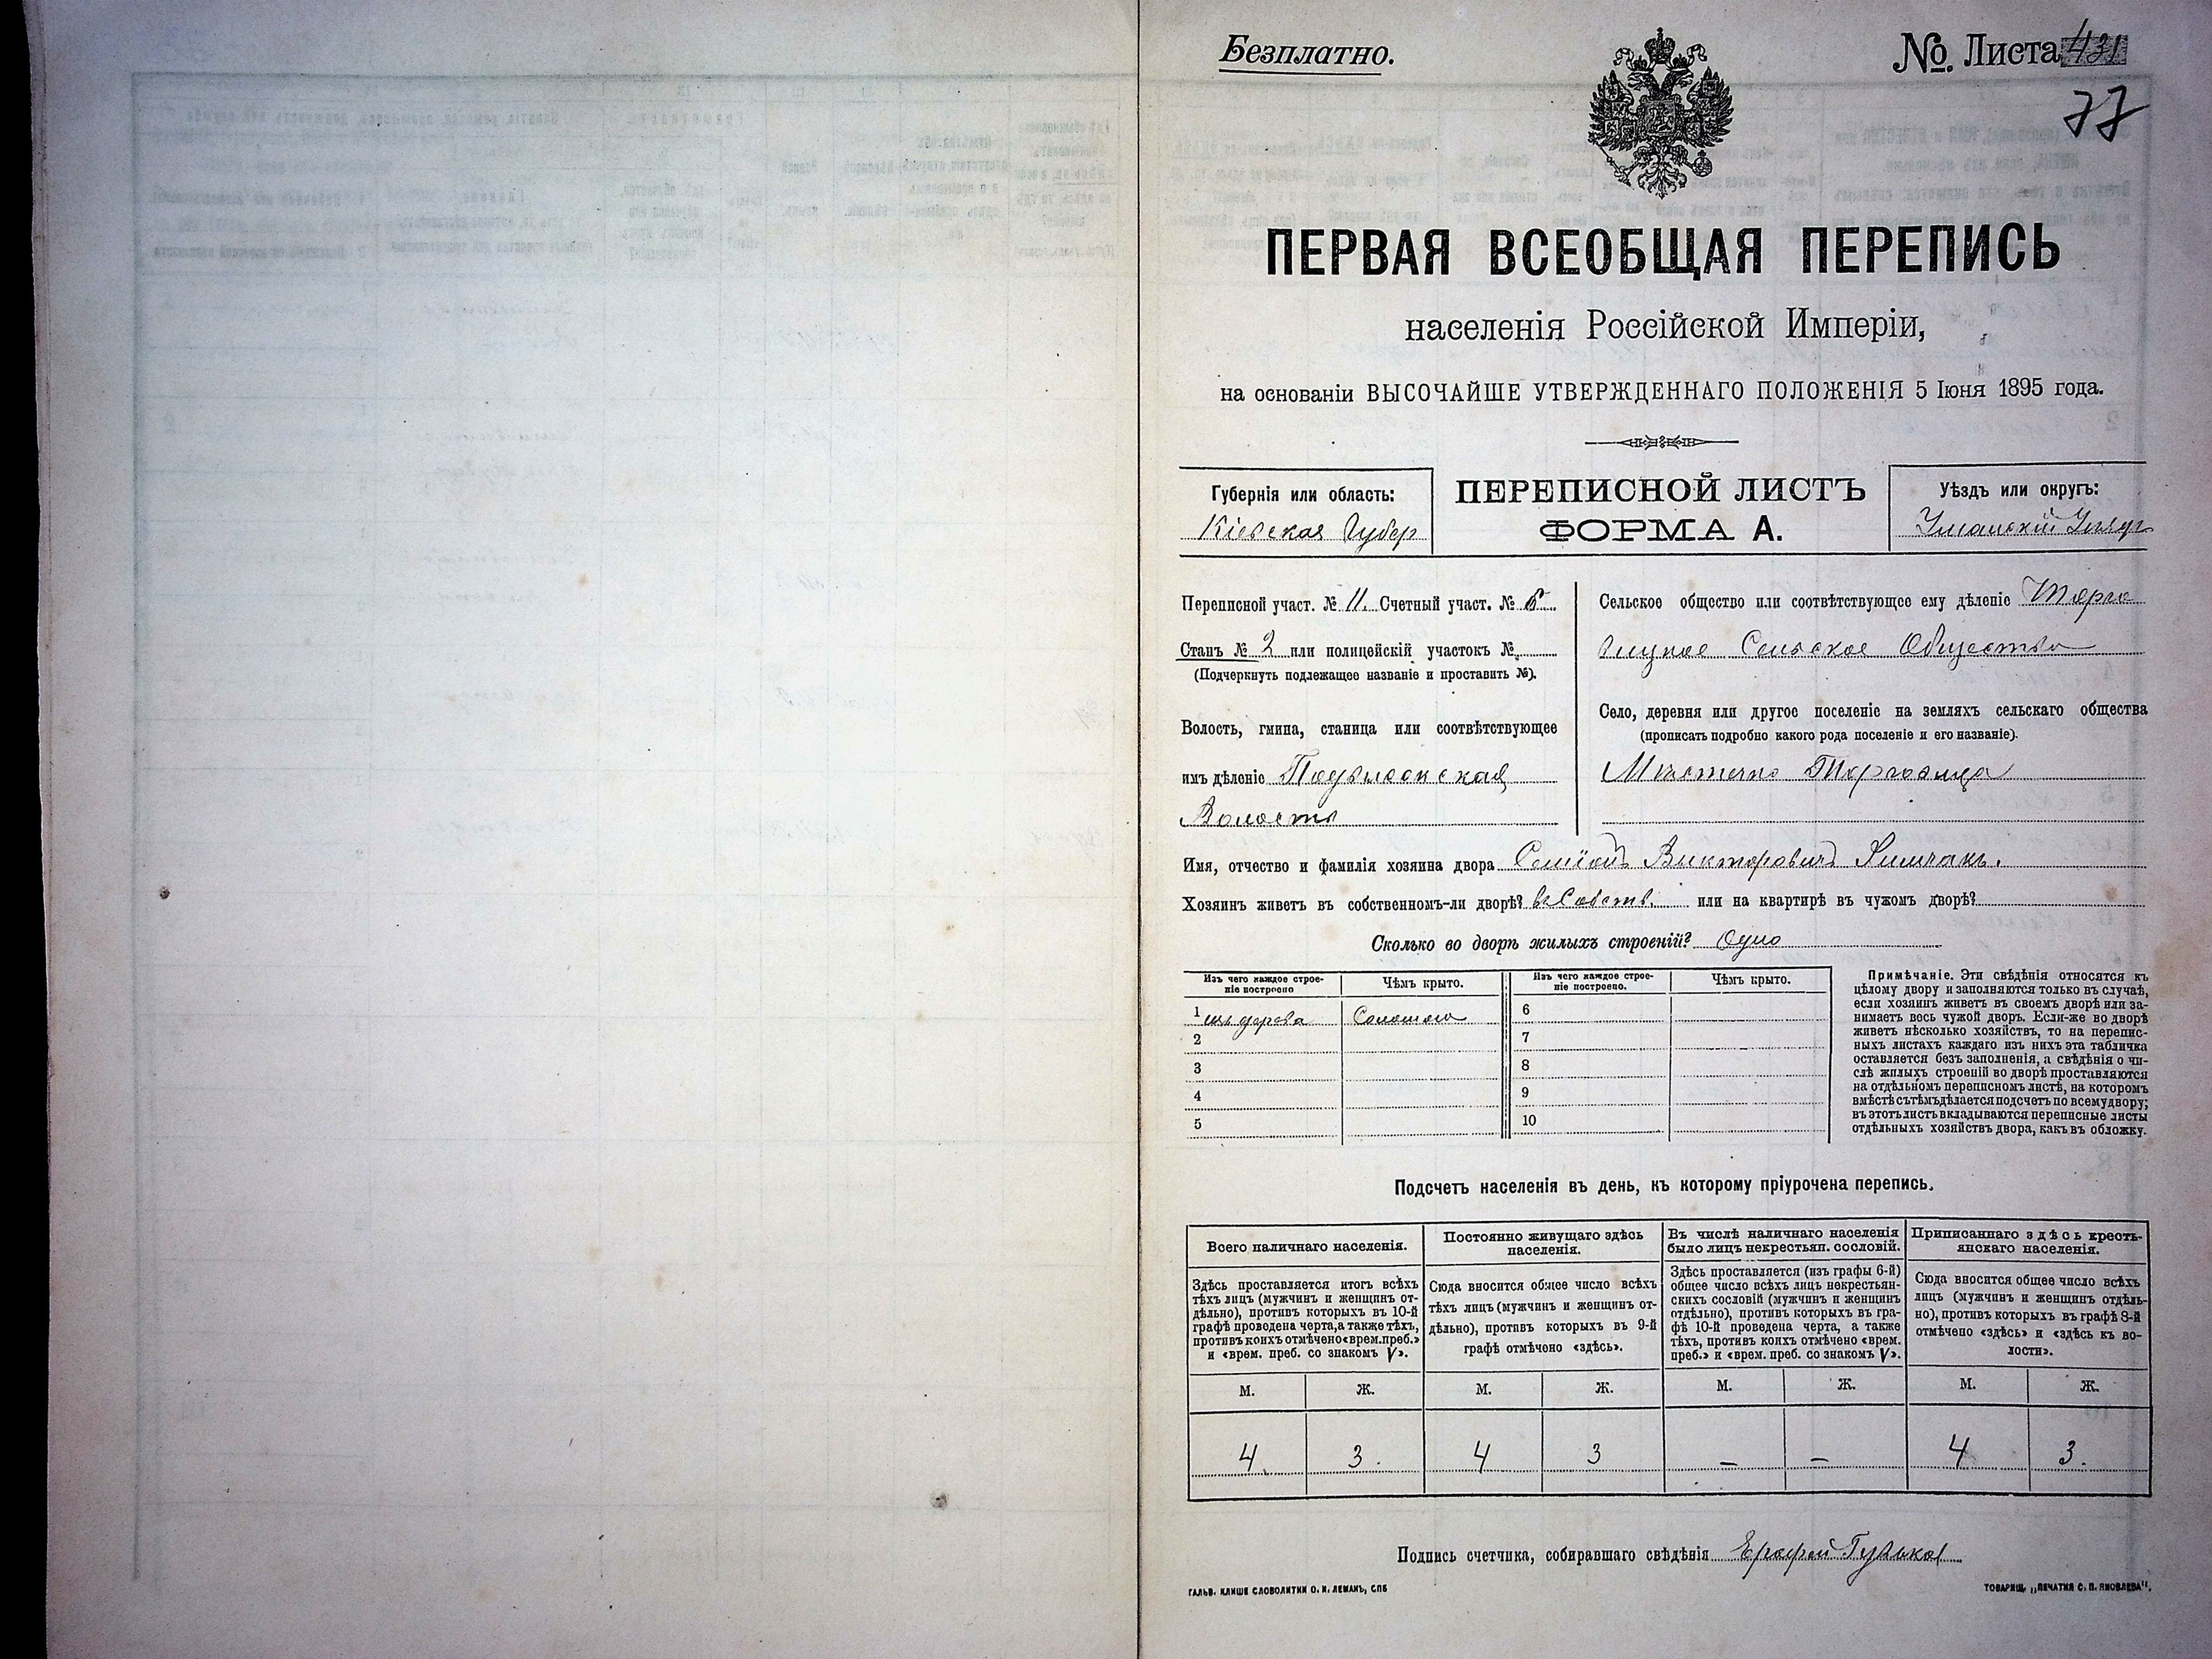 Безплатно.
№ Листа 431
77
ПЕРВАЯ ВСЕОБЩАЯ ПЕРЕПИСЬ
населенія Россійской Имперіи,
на основаніи ВЫСОЧАЙШЕ УТВЕРЖДЕННАГО ПОЛОЖЕНІЯ 5 Іюня 1895 года.
Губернія или область:
Кіевская Губер
ПЕРЕПИСНОЙ ЛИСТЪ
ФОРМА А.
Уѣздъ или округъ:
Уманскій Уѣздъ
Переписной участ. № 11. Счетный участ. №
Станъ № 2 или полицейскій участокъ №
(Подчеркнуть подлежащее названіе и проставить №).
Волость, гмина, станица или соотвѣтствующее
имъ дѣленіе Подвысокская
Волость
Сельское общество или соотвѣтствующее ему дѣленіе Торго
вицкое Сельское Общество
Село, деревня или другое поселеніе на земляхъ сельскаго общества
(прописать подробно какого рода поселеніе и его названіе).
Мѣстечко Торговица
Имя, отчество и фамилія хозяина двора Викторовичъ
Хозяинъ живетъ въ собственномъ-ли дворѣ? въ Собств. или на квартирѣ въ чужомъ дворѣ?
Сколько во дворѣ жилыхъ строеній? Одно
Изъ чего каждое строе-
ніе построено
Чѣмъ крыто.
Изъ чего каждое строе-
ніе построено.
Чѣмъ крыто.
1 изъ дерева Соломою 6
2 7
3 8
4 9
5 10
Примѣчаніе. Эти свѣдѣнія относятся къ
цѣлому двору и заполняются только въ случаѣ,
если хозяинъ живетъ въ своемъ дворѣ или за-
нимаетъ весь чужой дворъ. Если-же во дворѣ
живетъ нѣсколько хозяйствъ, то на перепис-
ныхъ листахъ каждаго изъ нихъ эта табличка
оставляется безъ заполненія, а свѣдѣнія о чи-
слѣ жилыхъ строеній во дворѣ проставляются
на отдѣльномъ переписномъ листѣ, на которомъ
вмѣстѣ съ тѣмъ дѣлается подсчетъ по всему двору;
въ этотъ листъ вкладываются переписные листы
отдѣльныхъ хозяйствъ двора, какъ въ обложку.
Подсчетъ населенія въ день, къ которому пріурочена перепись.
Всего наличнаго населенія.
Здѣсь проставляется итогъ всѣхъ
тѣхъ лицъ (мужчинъ и женщинъ от-
дѣльно), противъ которыхъ въ 10-й
графѣ проведена черта, а также тѣхъ,
противъ коихъ отмѣчено «врем. преб.»
и «врем. преб. со знакомъ V».
Постоянно живущаго здѣсь
населенія.
Сюда вносится общее число всѣхъ
тѣхъ лицъ (мужчинъ и женщинъ от-
дѣльно), противъ которыхъ въ 9-й
графѣ отмѣчено «здѣсь».
Въ числѣ наличнаго населенія
было лицъ некрестьян. сословій.
Здѣсь проставляется (изъ графы 6-й)
общее число всѣхъ лицъ некрестьян-
скихъ сословій (мужчинъ и женщинъ
отдѣльно), противъ которыхъ въ гра-
фѣ 10-й проведена черта, а также
тѣхъ, противъ коихъ отмѣчено «врем.
преб.» и «врем. преб. со знакомъ V».
Приписаннаго здѣсь кресть-
янскаго населенія.
Сюда вносится общее число всѣхъ
лицъ (мужчинъ и женщинъ отдѣль-
но), противъ которыхъ въ графѣ 8-й
отмѣчено «здѣсь» и «здѣсь къ во-
лости».
М. Ж. М. Ж. М. Ж. М. Ж.
4 3. 4 3 – – 4 3.
Подпись счетчика, собиравшаго свѣдѣнія
ГАЛЬВ. КЛИШЕ СЛОВОЛИТНИ О. И. ЛЕМАНЪ, СПБ
ТОВАРИЩ. „ПЕЧАТНЯ С. П. ЯКОВЛЕВА“.